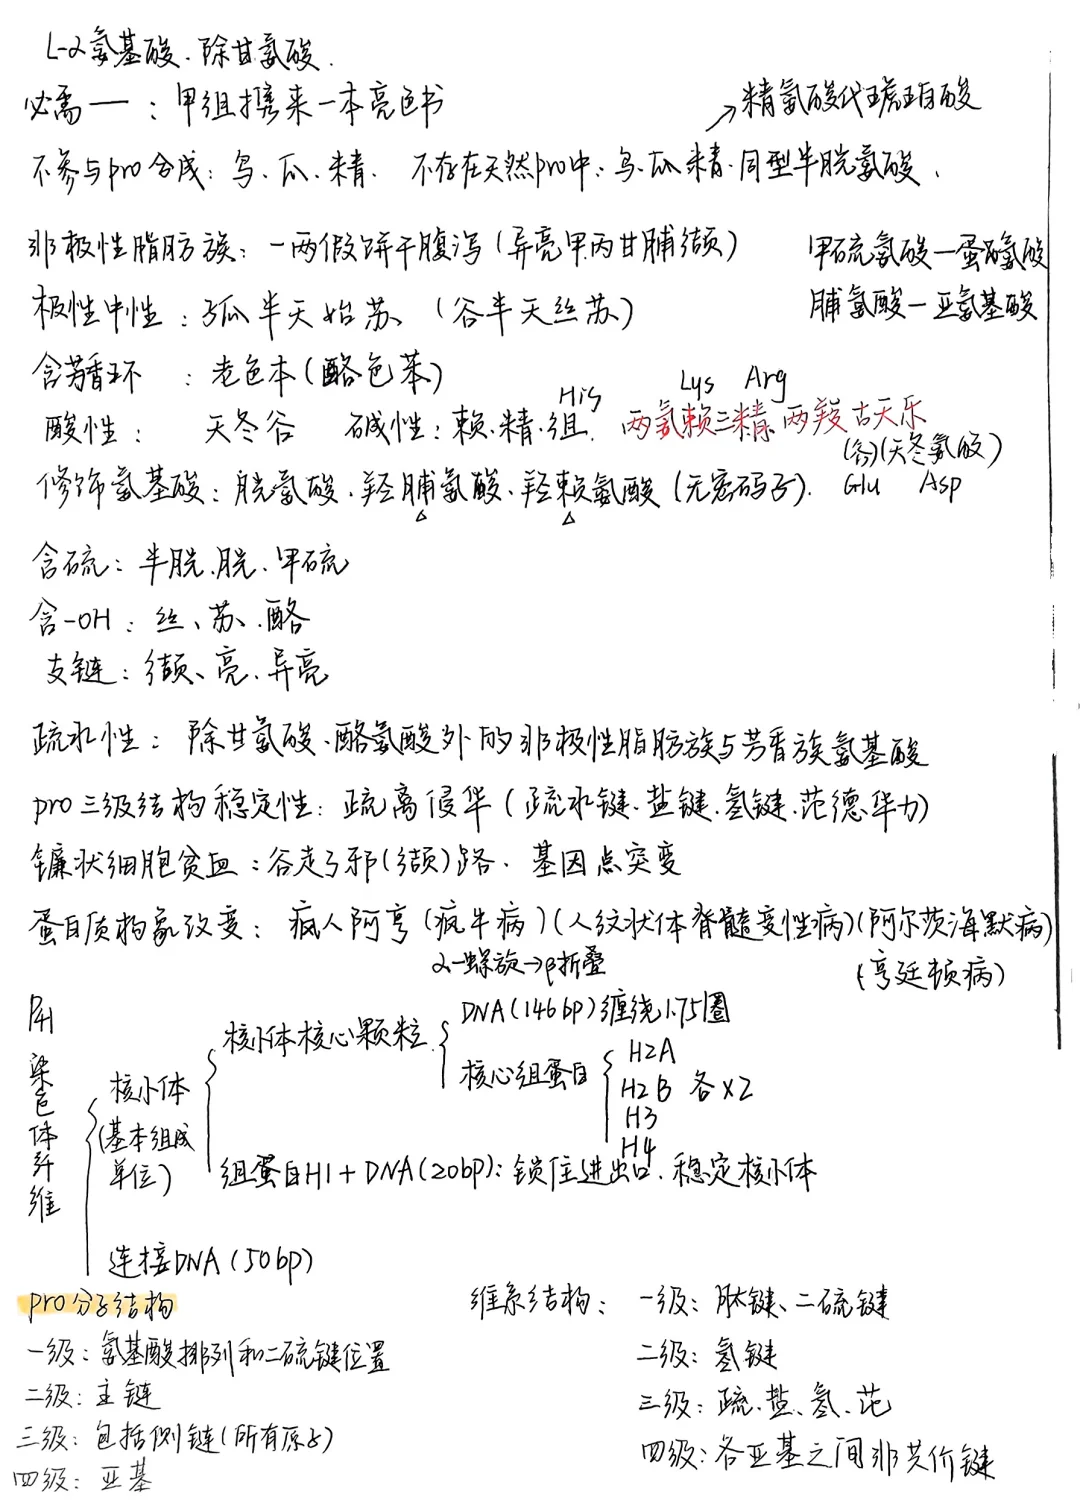 L-α氨基酸.除甘氨酸.
必需一：甲组携来一本亮色书
→精氨酸代琥珀酸
不参与pro合成：鸟、瓜、精. 不存在天然pro中：鸟.瓜.精.同型半胱氨酸.
非极性脂肪族：一两假饼干腹泻(异亮甲丙甘脯缬) 甲硫氨酸—蛋氨酸
极性中性：孤半天始苏、(谷半天丝苏) 脯氨酸—亚氨基酸
含芳香环：老色本(酪色苯)
His Lys Arg
酸性：天冬谷 碱性：赖.精.组. 两氨赖三精 两羧古天乐
(谷)(天冬氨酸)
修饰氨基酸：胱氨酸.羟脯氨酸.羟赖氨酸(无密码子). Glu Asp
含硫：半胱.胱.甲硫
含-OH：丝、苏、酪
支链：缬、亮.异亮
疏水性：除甘氨酸、酪氨酸外的非极性脂肪族与芳香族氨基酸
pro三级结构稳定性：疏离侵华(疏水键.盐键.氢键.范德华力)
镰状细胞贫血：谷走了邪(缬)路. 基因点突变
蛋白质构象改变：疯人阿亨(疯牛病)(人纹状体脊髓变性病)(阿尔茨海默病)
α-螺旋→β折叠 (亨廷顿病)
染色体纤维
核小体(基本组成单位)
核小体核心颗粒
DNA(146bp)缠绕1.75圈
核心组蛋白
H2A
H2B 各×2
H3
H4
组蛋白H1+DNA(20bp)：锁住进出口.稳定核小体
连接DNA(50bp)
pro分子结构 维系结构：一级：肽键、二硫键
一级：氨基酸排列和二硫键位置 二级：氢键
二级：主链 三级：疏.盐、氢.范
三级：包括侧链(所有原子) 四级：各亚基之间非共价键
四级：亚基